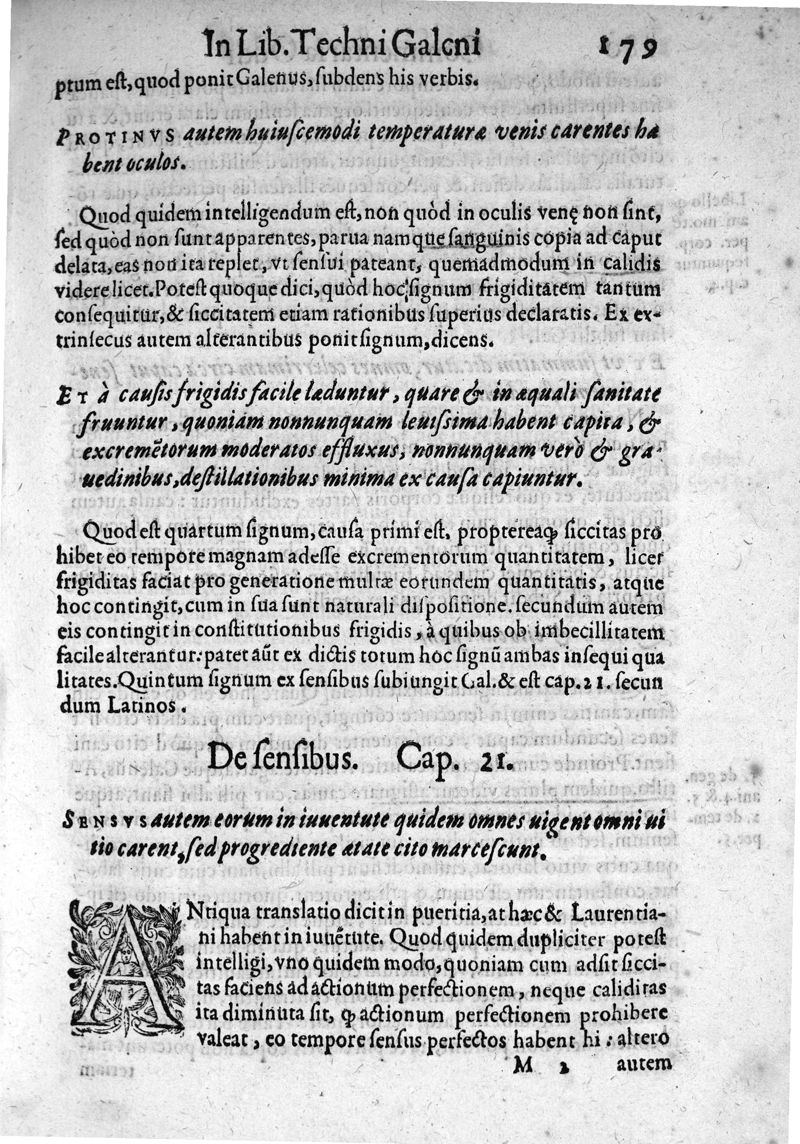 In Lib. Techni Galeni 179
ptum est, quod ponit Galenus, subdens his verbis.
PROTINVS autem huiuscemodi temperaturæ venis carentes ha
bent oculos.
Quod quidem intelligendum est, non quòd in oculis venę non sint,
sed quòd non sunt apparentes, parua namque sanguinis copia ad caput
delata, eas non ita replet, vt sensui pateant, quemadmodum in calidis
videre licet. Potest quoque dici, quòd hoc signum frigiditatem tantum
consequitur, & siccitatem etiam rationibus superius declaratis. Ex ex-
trinsecus autem alterantibus ponit signum, dicens.
ET à causis frigidis facile læduntur, quare & inæquali sanitate
fruuntur, quoniam nonnunquam leuissima habent capita, &
excremẽtorum moderatos effluxus, nonnunquam verò & gra-
uedinibus, destillationibus minima ex causa capiuntur.
Quod est quartum signum, causa primi est, proptereaq; siccitas pro
hibet eo tempore magnam adesse excrementorum quantitatem, licet
frigiditas faciat pro generatione multæ eorundem quantitatis, atque
hoc contingit, cum in sua sunt naturali dispositione. secundum autem
eis contingit in constitutionibus frigidis, à quibus ob imbecillitatem
facile alterantur: patet aũt ex dictis totum hoc signũ ambas insequi qua
litates. Quintum signum ex sensibus subiungit Gal. & est cap. 21. secun
dum Latinos.
De sensibus. Cap. 21.
SENSVS autem eorum in iuuentute quidem omnes uigent omni ui
tio carent, sed progrediente ætate cito marcescunt.
ANtiqua translatio dicit in pueritia, at hæc & Laurentia-
ni habent in iuuẽtute. Quod quidem dupliciter potest
intelligi, vno quidem modo, quoniam cum adsit sicci-
tas faciens ad actionum perfectionem, neque caliditas
ita diminuta sit, ꝙ actionum perfectionem prohibere
valeat, eo tempore sensus perfectos habent hi: altero
M 2 autem